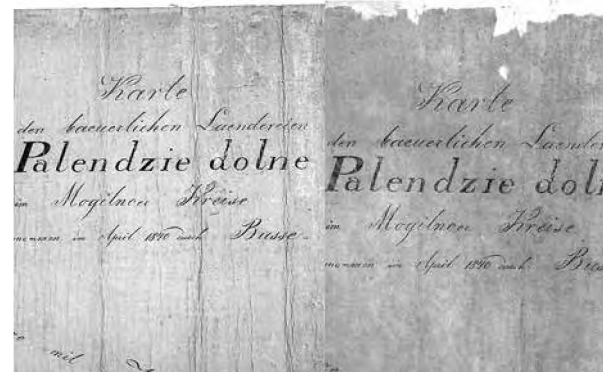 Karte
den baeuerlichen Laendereien
Palendzie dolne
im Mogilnoer Kreise
nommen im April 1840 durch Busse.
mit
Karte
den baeuerlichen Laender
Palendzie dol
im Mogilnoer Kreise
nommen im April 1840 durch Bus